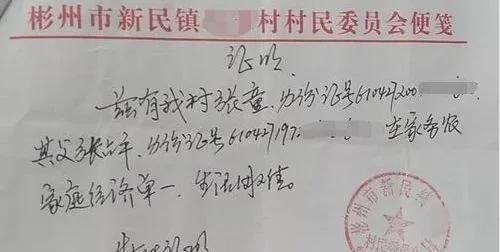 彬州市新民镇 村村民委员会便笺
证明
兹有我村张童，身份证号610427200
其父张占平，身份证号610427197 在家务农
家庭经济单一，生活困难。
特此证明
彬州市新民镇
村民委员会